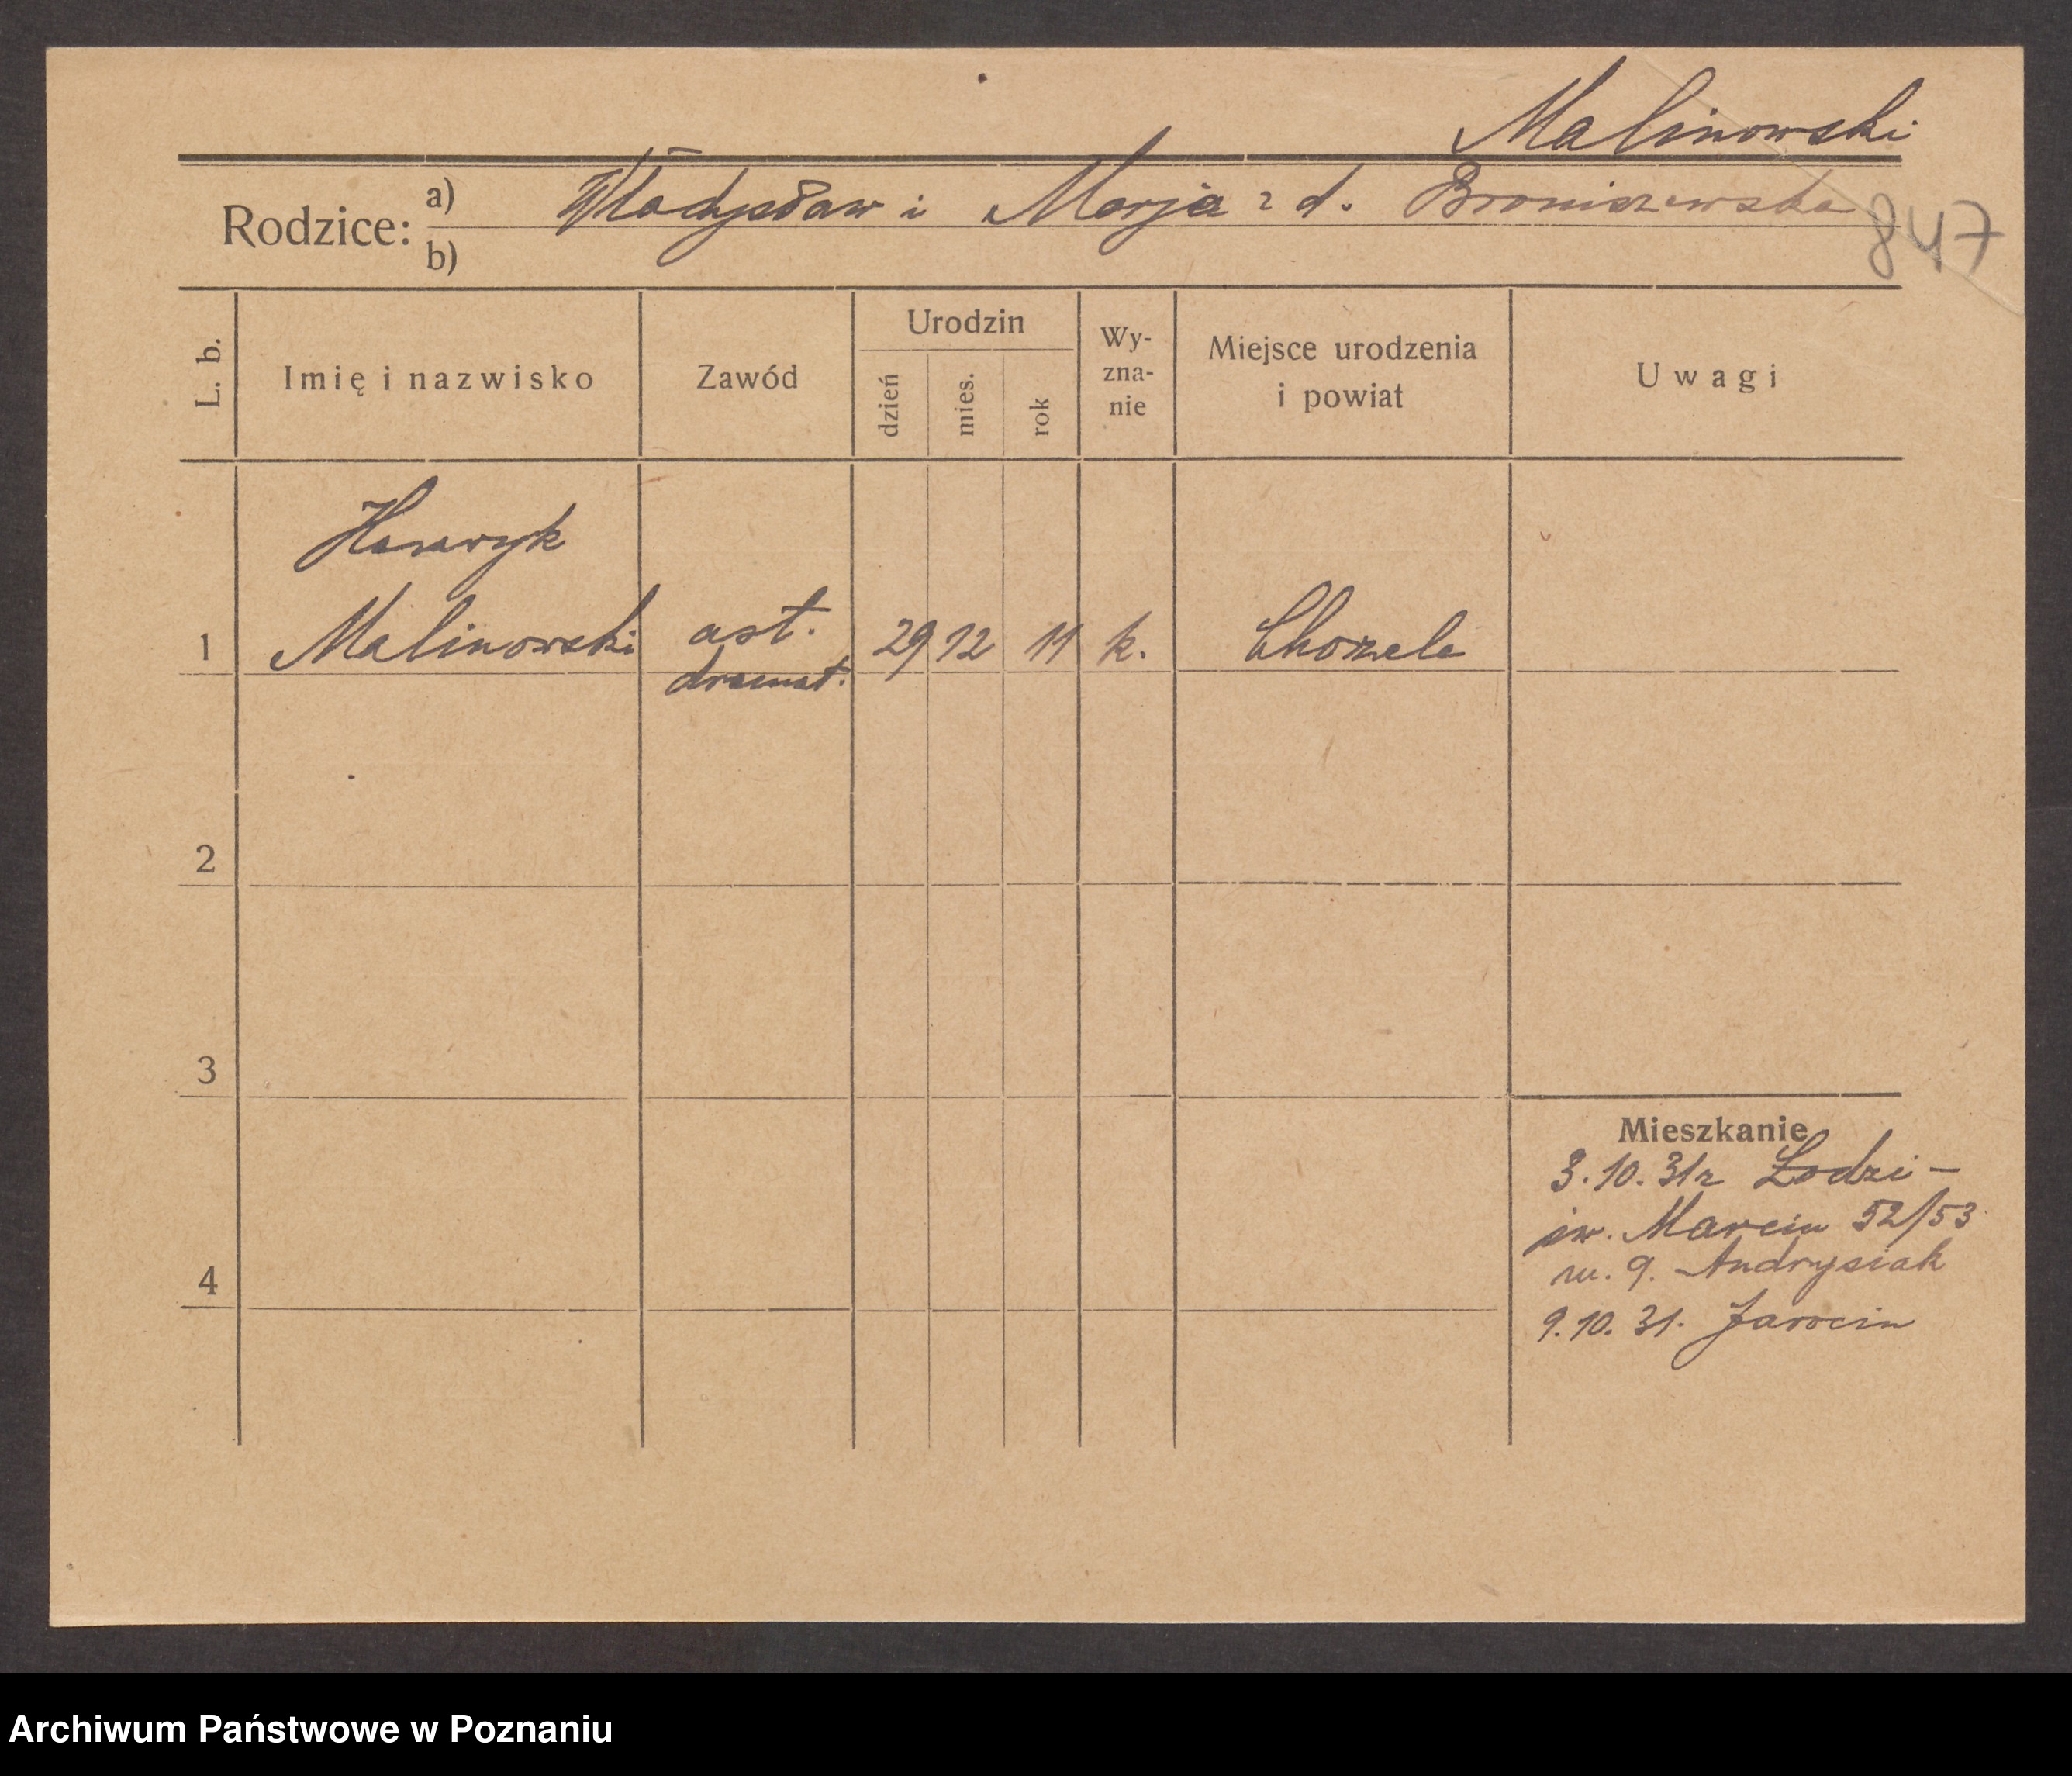 Malinowski
Rodzice: a) Władysław i Marja z d. Broniszewska
b)
847
L. b.
Imię i nazwisko
Zawód
Urodzin
dzień
mies.
rok
Wy-
zna-
nie
Miejsce urodzenia
i powiat
Uwagi
Henryk
1 Malinowski art. 29 12 11 k. Chorzele
dramat.
2
3
4
Mieszkanie
3.10.31 z Łodzi –
św. Marcin 52/53
m. 9. Andrysiak
9.10.31. Jarocin
Archiwum Państwowe w Poznaniu